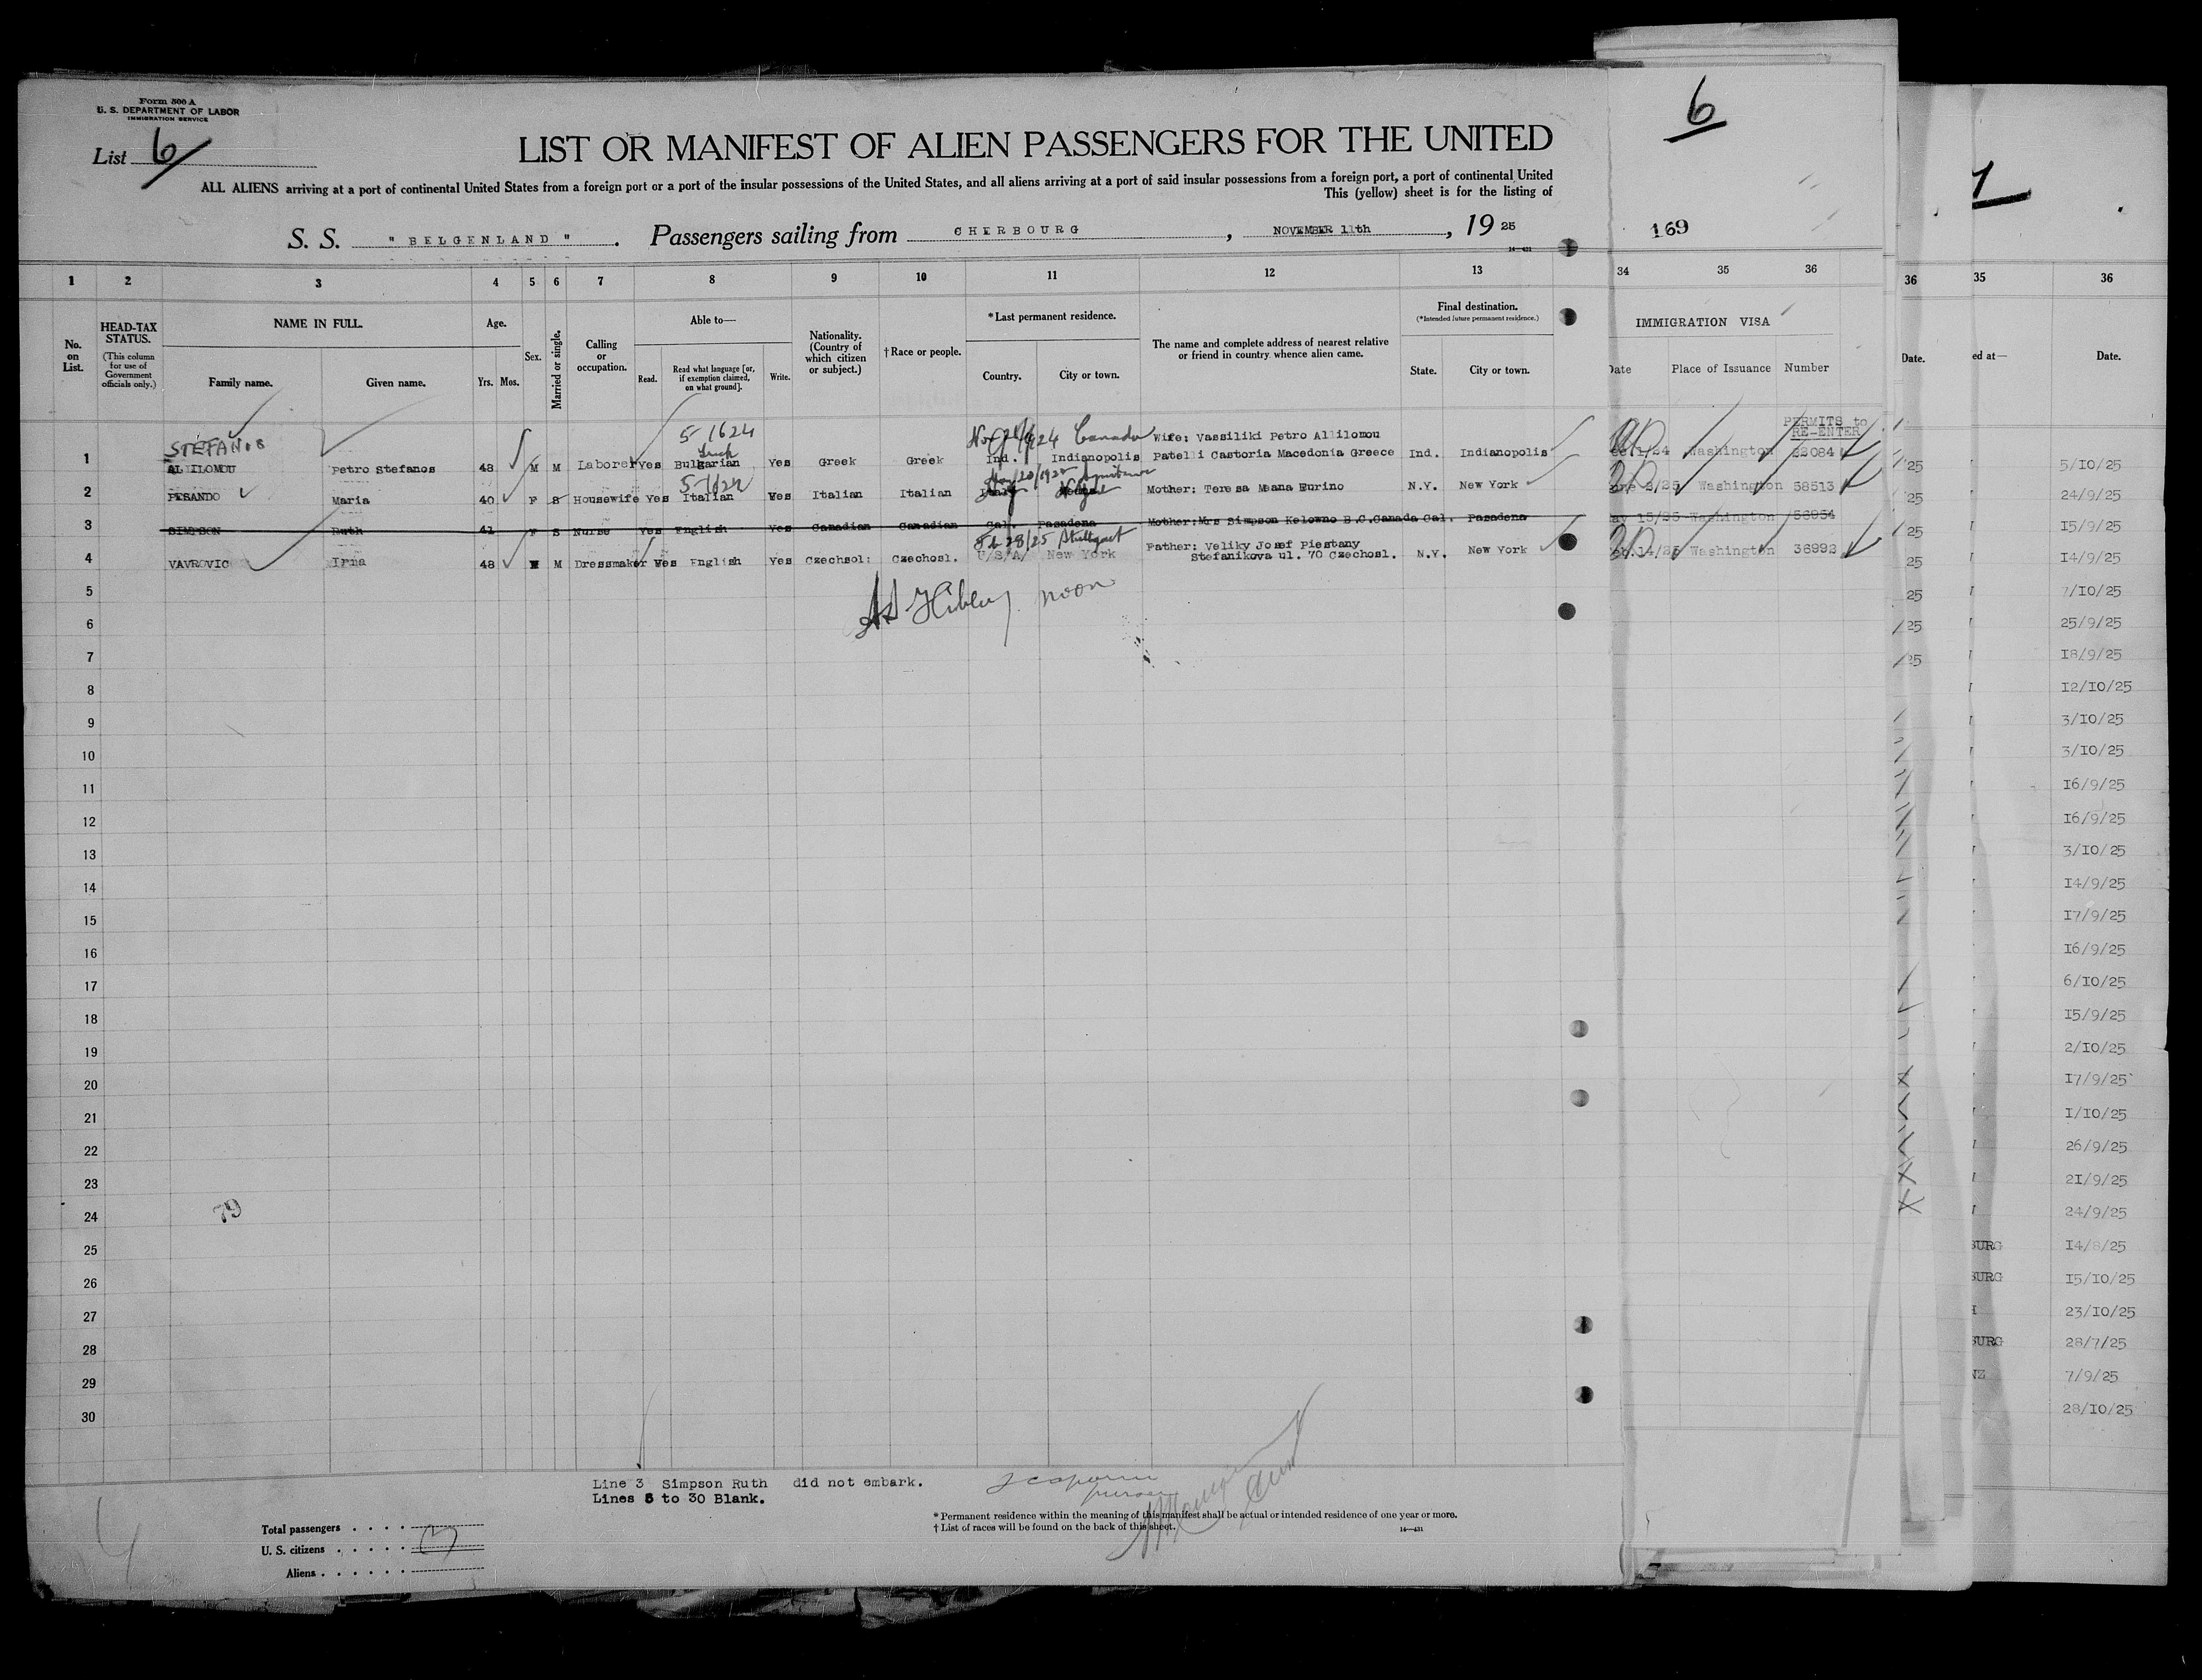 Form 500 A
U. S. DEPARTMENT OF LABOR
IMMIGRATION SERVICE
List 6
LIST OR MANIFEST OF ALIEN PASSENGERS FOR THE UNITED
ALL ALIENS arriving at a port of continental United States from a foreign port or a port of the insular possessions of the United States, and all aliens arriving at a port of said insular possessions from a foreign port, a port of continental United
This (yellow) sheet is for the listing of
S. S. "BELGENLAND". Passengers sailing from CHERBOURG, NOVEMBER 11th, 1925
6
169
1 2 3 4 5 6 7 8 9 10 11 12 13 34 35 36
36 35 36
No. on List.
HEAD-TAX STATUS.
(This column for use of Government officials only.)
NAME IN FULL.
Family name. Given name.
Age.
Yrs. Mos.
Sex.
Married or single.
Calling or occupation.
Able to—
Read. Read what language [or, if exemption claimed, on what ground]. Write.
Nationality. (Country of which citizen or subject.)
†Race or people.
*Last permanent residence.
Country. City or town.
The name and complete address of nearest relative or friend in country whence alien came.
Final destination.
(*Intended future permanent residence.)
State. City or town.
IMMIGRATION VISA
Date Place of Issuance Number
Date. ed at— Date.
PERMITS to
RE-ENTER
STEFANOS 5-1624 Canada Wife: Vassiliki Petro Allilomou
1 ALLILOMOU Petro Stefanos 48 M M Laborer Yes Bulgarian Yes Greek Greek Ind. Indianopolis Patelli Castoria Macedonia Greece Ind. Indianopolis Washington 22084
5-1624
2 PESANDO Maria 40 F S Housewife Yes Italian Yes Italian Italian Italy Mother: Teresa Meana Furino N.Y. New York Washington 58513
3 SIMPSON Ruth 41 F S Nurse Yes English Yes Canadian Canadian Cal. Pasadena Mother: Mrs Simpson Kelowno B.C. Canada Cal. Pasadena ay 15/25 Washington 56954
Feb 28/25 Stuttgart Father: Veliky Josef Piestany
4 VAVROVIC Irna 48 M Dressmaker Yes English Yes Czechsol: Czechosl. U/S/A/ New York Stefanikova ul. 70 Czechosl. N.Y. New York Washington 36992
noon
5
6
7
8
9
10
11
12
13
14
15
16
17
18
19
20
21
22
23
24
25
26
27
28
29
30
79
5/10/25
24/9/25
15/9/25
14/9/25
7/10/25
25/9/25
18/9/25
12/10/25
3/10/25
3/10/25
16/9/25
16/9/25
3/10/25
14/9/25
17/9/25
16/9/25
6/10/25
15/9/25
2/10/25
17/9/25
1/10/25
26/9/25
21/9/25
24/9/25
BURG 14/8/25
BURG 15/10/25
23/10/25
BURG 28/7/25
NZ 7/9/25
28/10/25
Line 3 Simpson Ruth did not embark.
Lines 5 to 30 Blank.
purser
* Permanent residence within the meaning of this manifest shall be actual or intended residence of one year or more.
† List of races will be found on the back of this sheet.
Total passengers
U. S. citizens
Aliens